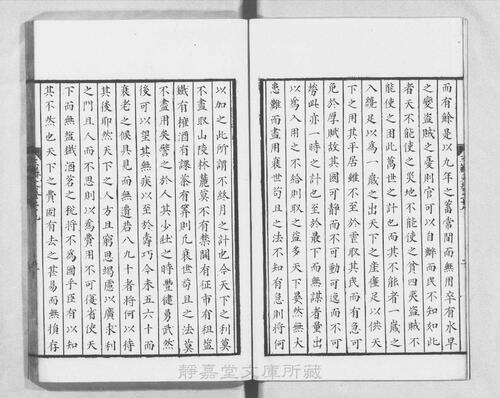 而有餘是以九年之蓄常閒而無用卒有水旱
之變盜賊之憂則官可以自辦而民不知如此
者天不能使之災地不能使之貧四夷盜賊不
能使之困此萬世之計也而其不能者一歲之
入纔足以為一歲之出天下之產僅足以供天
下之用其平居雖不至於虐取其民而有急不
免於厚賦故其國可靜而不可動可逸而不可
勞此亦一時之計也至於最下而無謀者量出
以為入用之不給則取之益多天下晏然無大
患難而盡用衰世苟且之法不知有急則將何
以加之此所謂不終月之計也今天下之利莫
不盡取山陵林麓莫不有禁關有征市有租鹽
鐵有榷酒有課茶有筭則凡衰世苟且之法莫
不盡用矣譬之於人其少壯之時豐健勇武然
後可以望其無疾以至於壽考今未五六十而
衰老之候具見而無遺若八九十者將何以待
其後耶然天下之人方且窮思竭慮以廣求利
之門且人而不思則以為費用不可復省使天
下而無鹽鐵酒茗之稅將不為國乎臣有以知
其不然也天下之費固有去之甚易而無損存
靜嘉堂文庫所藏